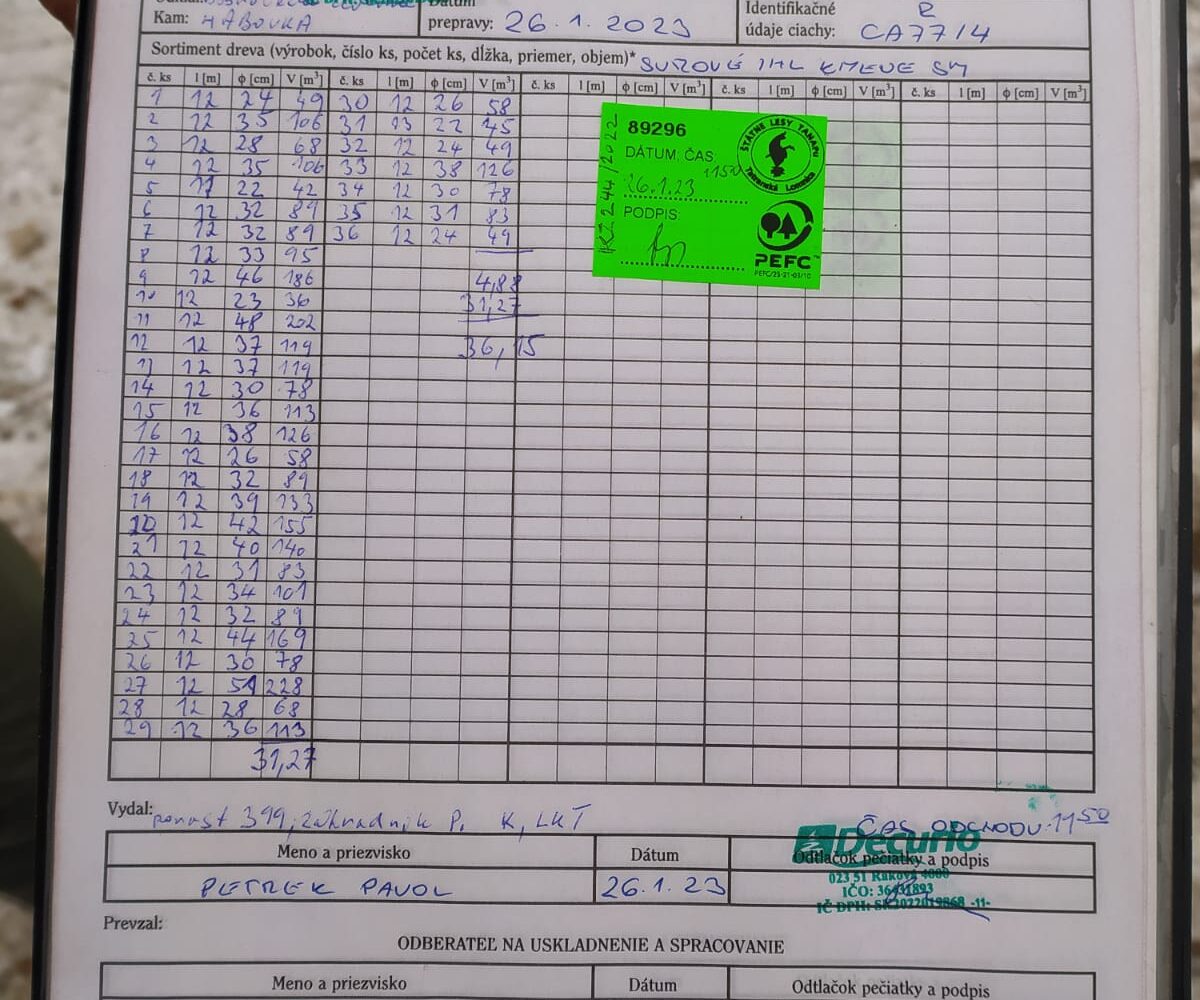 Kam: HÁBOVKA
prepravy: 26.1.2023
Identifikačné
údaje ciachy: CA7714
R
Sortiment dreva (výrobok, číslo ks, počet ks, dĺžka, priemer, objem)* SUROVÉ IHL KMENE SM
č. ks l [m] ϕ [cm] V [m³] č. ks l [m] ϕ [cm] V [m³] č. ks l [m] ϕ [cm] V [m³] č. ks l [m] ϕ [cm] V [m³] č. ks l [m] ϕ [cm] V [m³]
1 12 24 49 30 12 26 58
2 12 35 106 31 13 22 45
3 12 28 68 32 12 24 49
4 12 35 106 33 12 38 126
5 11 22 42 34 12 30 78
6 12 32 89 35 12 31 83
7 12 32 89 36 12 24 49
8 12 33 95
9 12 46 186 4,88
10 12 23 36 31,27
11 12 48 202
12 12 37 119 36,15
13 12 37 119
14 12 30 78
15 12 36 113
16 12 38 126
17 12 26 58
18 12 32 89
19 12 39 133
20 12 42 155
21 12 40 140
22 12 31 83
23 12 34 101
24 12 32 89
25 12 44 169
26 12 30 78
27 12 51 228
28 12 28 68
29 12 36 113
31,27
KZ 244/2022
89296
DÁTUM, ČAS:
26.1.23 1150
PODPIS:
ŠTÁTNE LESY TANAPU
Tatranská Lomnica
PEFC™
PEFC/23-21-03/10
Vydal: porast 399, záhradník P. K, LKT
ČAS ODCHODU: 11 50
Meno a priezvisko Dátum Odtlačok pečiatky a podpis
PETREK PAVOL 26.1.23
Decurio
023 51 Raková 4000
IČO: 36431893
IČ DPH: SK2022019868 -11-
Prevzal:
ODBERATEĽ NA USKLADNENIE A SPRACOVANIE
Meno a priezvisko Dátum Odtlačok pečiatky a podpis